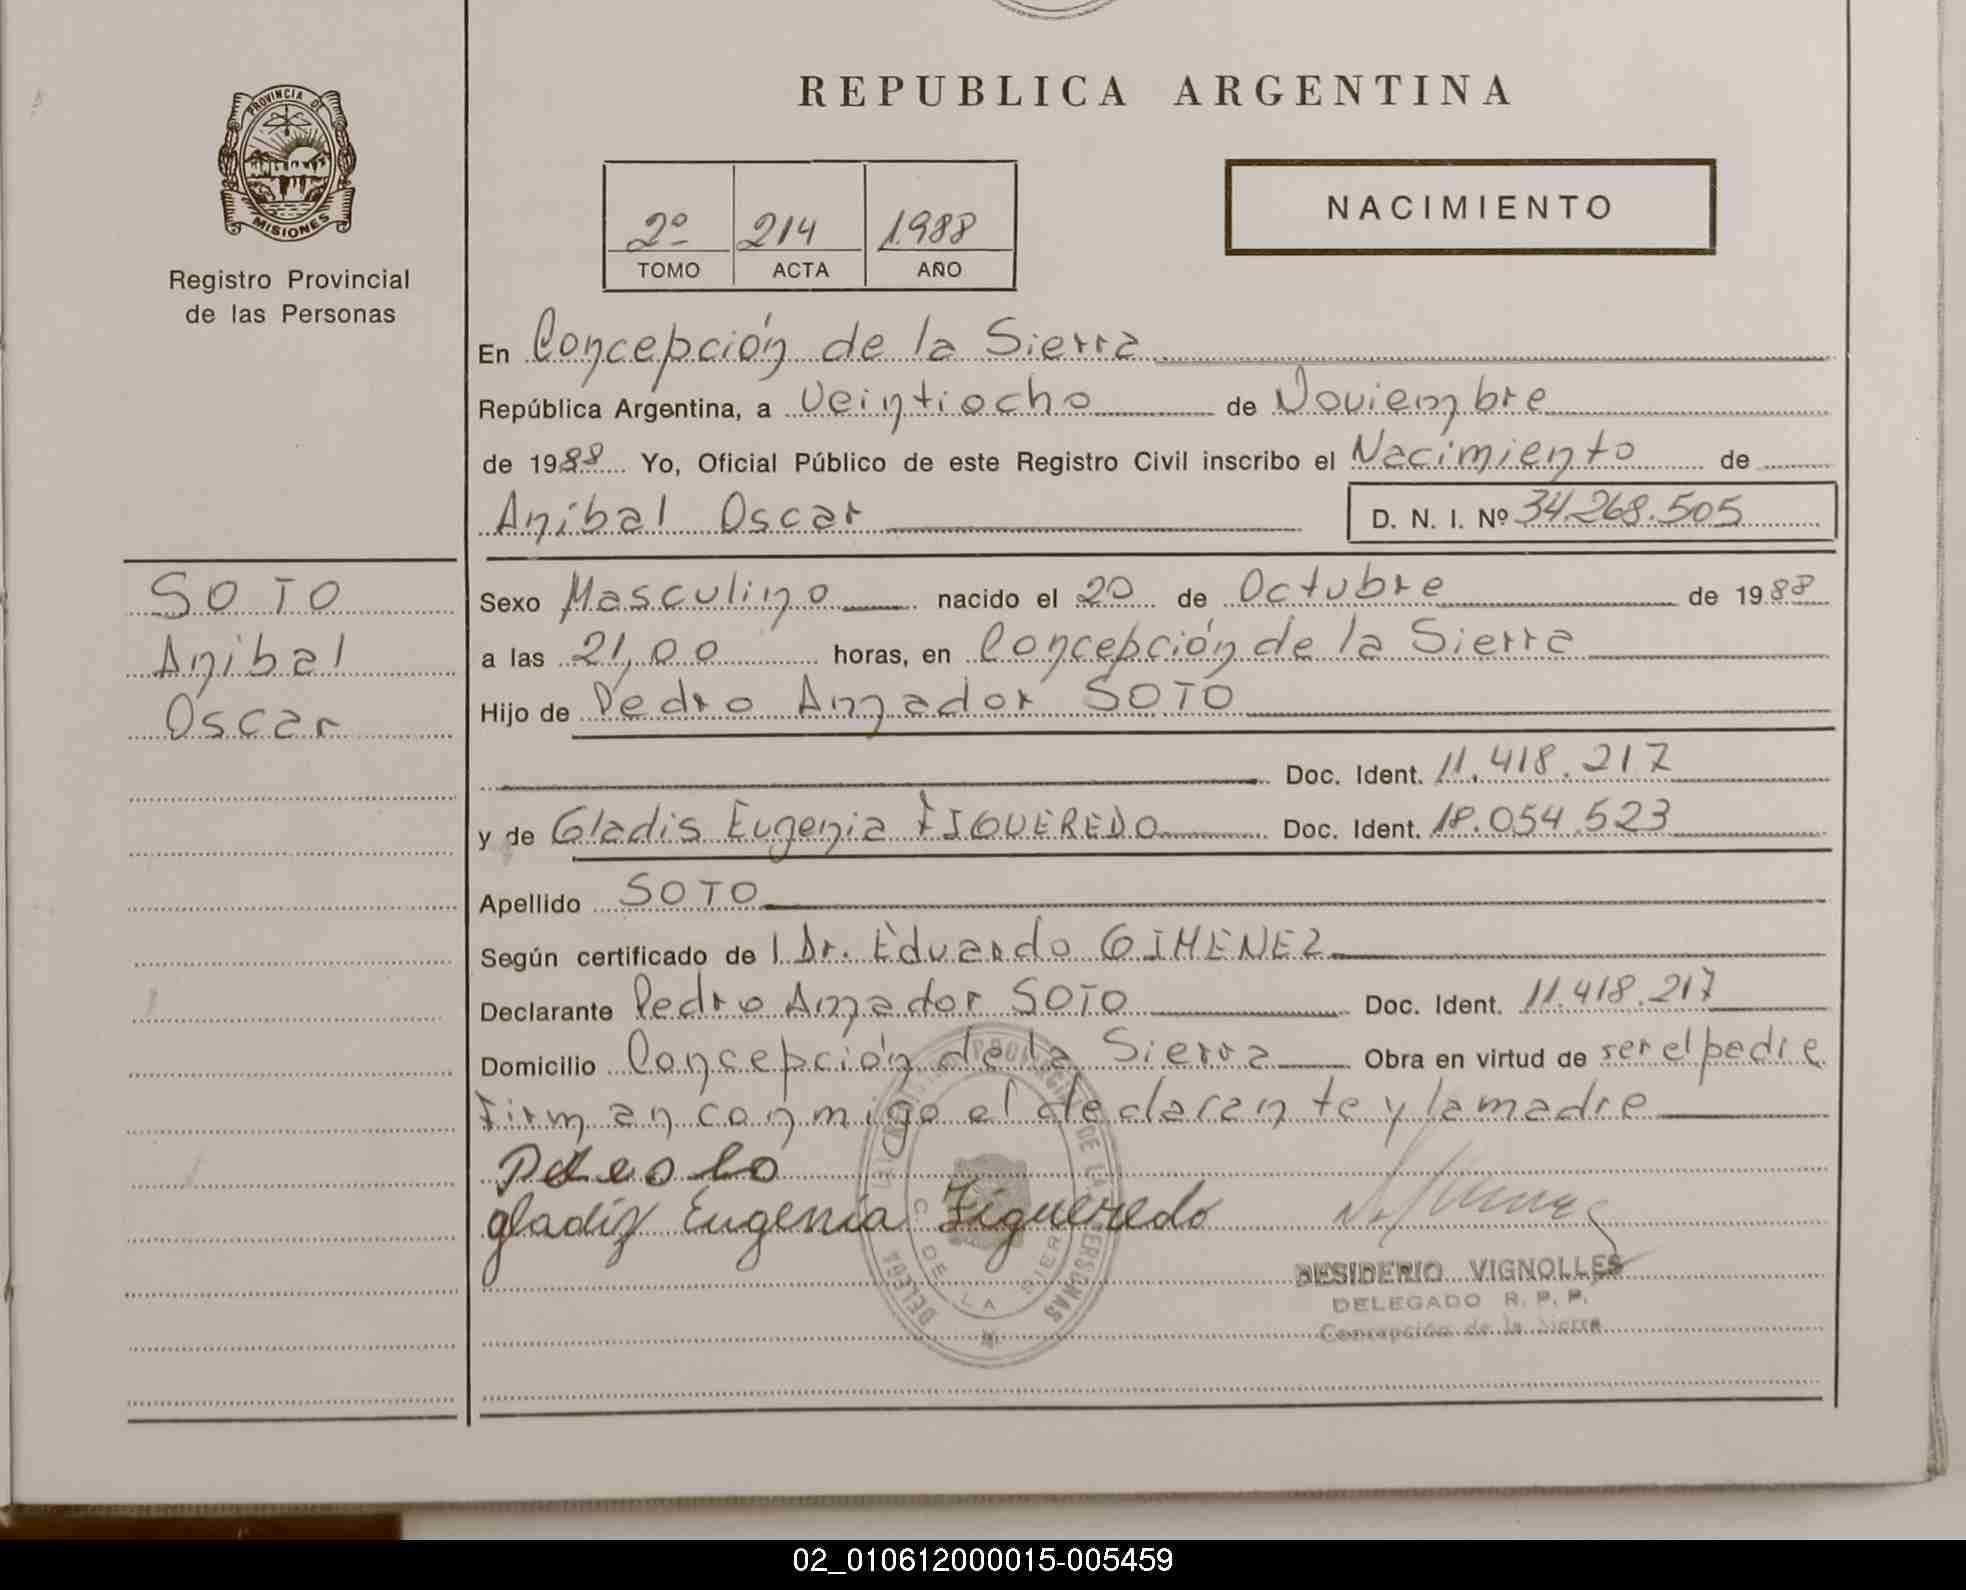 REPUBLICA ARGENTINA
PROVINCIA DE
MISIONES
Registro Provincial
de las Personas
2º 214 1988
TOMO ACTA AÑO
NACIMIENTO
En Concepción de la Sierra
República Argentina, a Veintiocho de Noviembre
de 1988 Yo, Oficial Público de este Registro Civil inscribo el Nacimiento de
Anibal Oscar D. N. I. Nº 34.268.505
SOTO
Anibal
Oscar
Sexo Masculino nacido el 20 de Octubre de 1988
a las 21,00 horas, en Concepción de la Sierra
Hijo de Pedro Amador SOTO
Doc. Ident. 11.418.217
y de Gladis Eugenia FIGUEREDO Doc. Ident. 18.054.523
Apellido SOTO
Según certificado de l Dr. Eduardo GIMENEZ
Declarante Pedro Amador SOTO Doc. Ident. 11.418.217
Domicilio Concepción de la Sierra Obra en virtud de ser el padre
Firman conmigo el declarante y la madre
gladiz Eugenia Figueredo
DESIDERIO VIGNOLLES
DELEGADO R. P. P.
Concepción de la Sierra
02_010612000015-005459